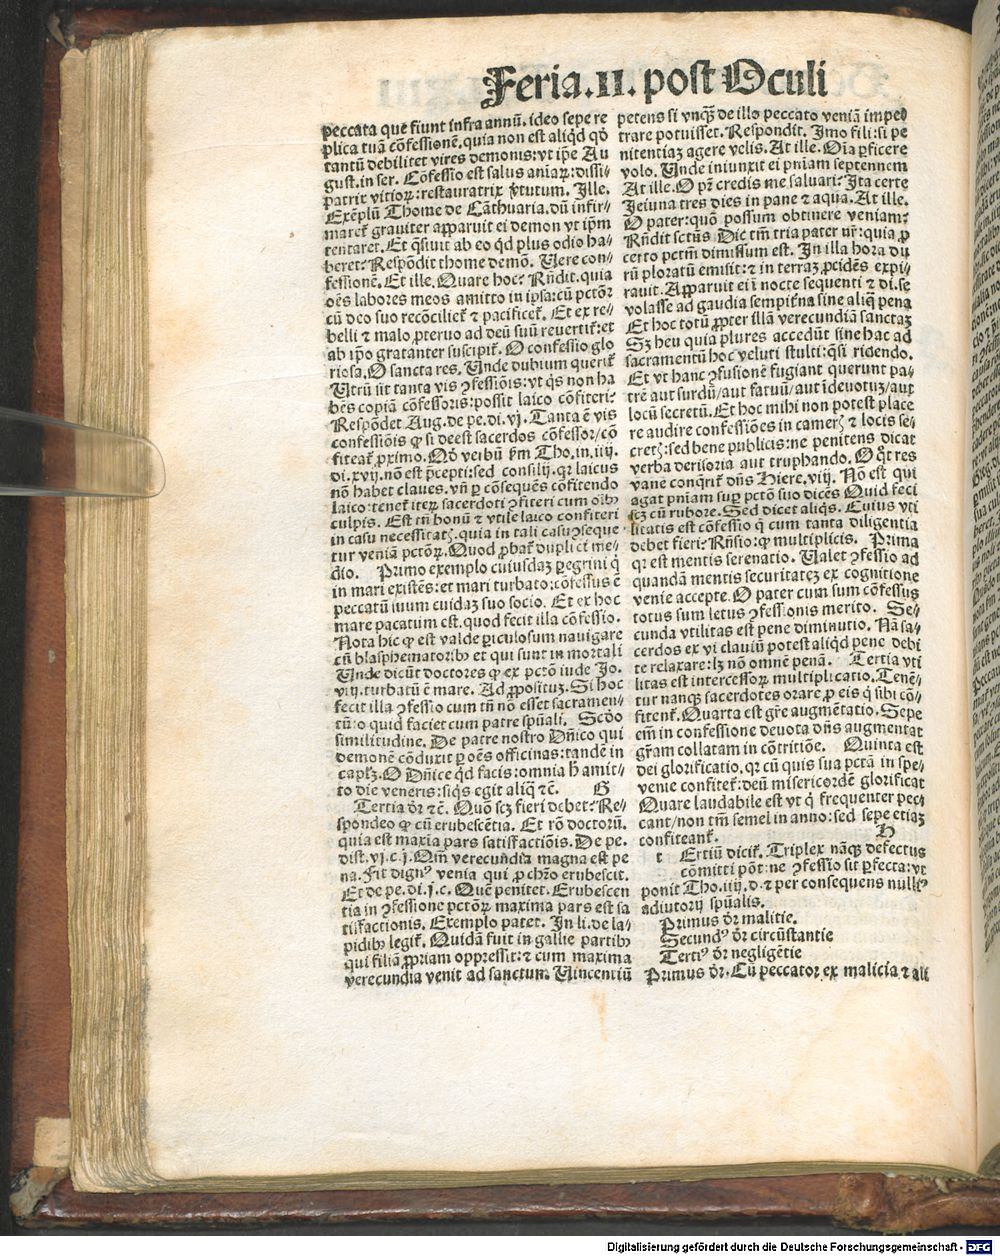 Feria.II.post Oculi
peccata que fiunt infra annū. ideo sepe re
plica tuā cōfessionē. quia non est aliqd qđ
tantū debilitet vires demonis: vt ip̄e Au
gust. in ser. Cōfessio est salus aniaꝝ: dissi⸗
patrix vitioꝝ: restauratrix v̓tutum. Ille.
Exēplū Thome de Cāthuaria. dū infir⸗
maret̄ grauiter apparuit ei demon vt ip̄m
tentaret. Et q̄siuit ab eo qd plus odio ha⸗
beret: Respōdit thome demō. Uere con⸗
fessionē. Et ille. Quare hoc: Rn̄dit. quia
oēs labores meos amitto in ipsa: cū pctōr
cū deo suo recōciliet̄ ⁊ pacificet̄. Et ex re⸗
belli ⁊ malo ꝓteruo ad deū suū reuertit̄: et
ab ip̄o gratanter suscipit̄. O confessio glo
riosa. O sancta res. Unde dubium querit̄
Utrū sit tanta vis ꝯfessiōis: vt qs non ha
bēs copiā cōfessoris: possit laico cōfiteri:
Respōdet Aug. de pe. di. vj. Tanta ē vis
confessiōis ꝙ si deest sacerdos cōfessor/ cō
fiteat̄ ꝓximo. Qđ verbū scđm Tho. in. iiij.
di. xvij. nō est p̄cepti: sed consilij. qr laicus
nō habet claues. vn̄ ꝑ cōsequēs cōfitendo
laico: tenet̄ iteꝝ sacerdoti ꝯfiteri cum oībꝰ
culpis. Est tn̄ bonū ⁊ vtile laico confiteri
in casu necessitatꝭ. quia in tali casu ꝯseque
tur veniā pctōꝝ. Quod ꝓbat̄ duplici me⸗
dio. Primo exemplo cuiusdaꝫ ꝑegrini q̄
in mari existēs: et mari turbato: cōfessus ē
peccatū suum cuidaꝫ suo socio. Et ex hoc
mare pacatum est. quod fecit illa cōfessio.
Nota hic ꝙ est valde ꝑiculosum nauigare
cū blasphematoribꝰ et qui sunt in mortali
Unde dicūt doctores ꝙ ex pctō iude Jo.
vij. turbatū ē mare. Ad ꝓpositūꝫ. Si hoc
fecit illa ꝯfessio cum tn̄ nō esset sacramen⸗
tū: o quid faciet cum patre spūali. Scđo
similitudine. De patre nostro Dn̄ico qui
demonē cōduxit ꝑ oēs officinas: tandē in
capl̄ꝫ. O Dn̄ice qd facis: omnia h̄ amit⸗
to die veneris: siqs egit aliq̄ ⁊c̄. G
Tertia dr̄ ⁊c̄. Quō scꝫ fieri debet: Re⸗
spondeo ꝙ cū erubescētia. Et rō doctorū.
quia est maxia pars satisfactiōis. De pe.
dist. vj. c. j. Qm̄ verecundia magna est pe
na. Fit dignꝰ venia qui ꝓ chr̄o erubescit.
Et de pe. di. j. c. Quē penitet. Erubescen
tia in ꝯfessione pctōꝝ maxima pars est sa
tisfactionis. Exemplo patet. In li. de la⸗
pidibꝰ legit̄. Quidā fuit in gallie partibꝰ
qui filiā ꝓpriam oppressit: ⁊ cum maxima
verecundia venit ad sanctum Uincentiū
petens si vnq̄ꝫ de illo peccato veniā impe⸗
trare potuisset. Respondit. Jmo fili: si pe
nitentiaꝫ agere velis. At ille. Oīa ꝑficere
volo. Unde iniunxit ei pn̄iam septennem
At ille. O pr̄ credis me saluari: Ita certe
Jeiuna tres dies in pane ⁊ aqua. At ille.
O pater: quō possum obtinere veniam:
Rn̄dit sctūs. Dic tm̄ tria pater nr̄: quia ꝓ
certo pctm̄ dimissum est. In illa hora du
rū ploratū emisit: ⁊ in terraꝫ ꝓcidēs expi⸗
rauit. Apparuit ei ī nocte sequenti ⁊ di. se
volasse ad gaudia sempit̄na sine aliq̄ pena
Et hoc totū ꝓpter illā verecundiā sanctaꝫ
Sꝫ heu quia plures accedūt sine hac ad
sacramentū hoc veluti stulti: q̄si ridendo.
Et vt hanc ꝯfusionē fugiant querunt pa⸗
trē aut surdū/ aut fatuū/ aut īdeuotuꝫ/ aut
locū secretū. Et hoc mihi non potest place
re audire confessiōes in camerꝭ ⁊ locis se⸗
cretꝭ: sed bene publicis: ne penitens dicat
verba derisoria aut truphando. O qt res
vane conqrit̄ dn̄s Hiere. viij. Nō est qui
agat pn̄iam suꝑ pctō suo dicēs Quid feci
scꝫ cū rubore. Sed dicet aliqs. Cuius vti
litatis est cōfessio q̄ cum tanta diligentia
debet fieri: Rn̄sio: ꝙ multiplicis. Prima
qr est mentis serenatio. Ualet ꝯfessio ad
quandā mentis securitateꝫ ex cognitione
venie accepte. O pater cum sum cōfessus
totus sum letus ꝯfessionis merito. Se⸗
cunda vtilitas est pene diminutio. Nā sa⸗
cerdos ex vi clauiū potest aliqd pene debi
te relaxare: lꝫ nō omnē penā. Tertia vti
litas est intercessoꝝ multiplicatio. Tenē⸗
tur nanqꝫ sacerdotes orare ꝓ eis q̄ sibi cō⸗
fitent̄. Quarta est gr̄e augmētatio. Sepe
em̄ in confessione deuota dn̄s augmentat
gr̄am collatam in cōtritiōe. Quinta est
dei glorificatio. qr cū quis sua pctā in spe⸗
venie confitet̄: deū misericordē glorificat
Quare laudabile est vt q̄ frequenter pec⸗
cant/ non tm̄ semel in anno: sed sepe etiaꝫ
confiteant̄. H
t Ertiū dicit̄. Triplex nāqꝫ defectus
cōmitti pōt: ne ꝯfessio sit ꝑfecta: vt
ponit Tho. iiij. d. ⁊ per consequens nulliꝰ
adiutorij spūalis.
Primus dr̄ malitie.
Secundꝰ dr̄ circūstantie
Tertiꝰ dr̄ negligētie
Primus dr̄. Cū peccator ex malicia ⁊ ali
Digitalisierung gefördert durch die Deutsche Forschungsgemeinschaft - DFG